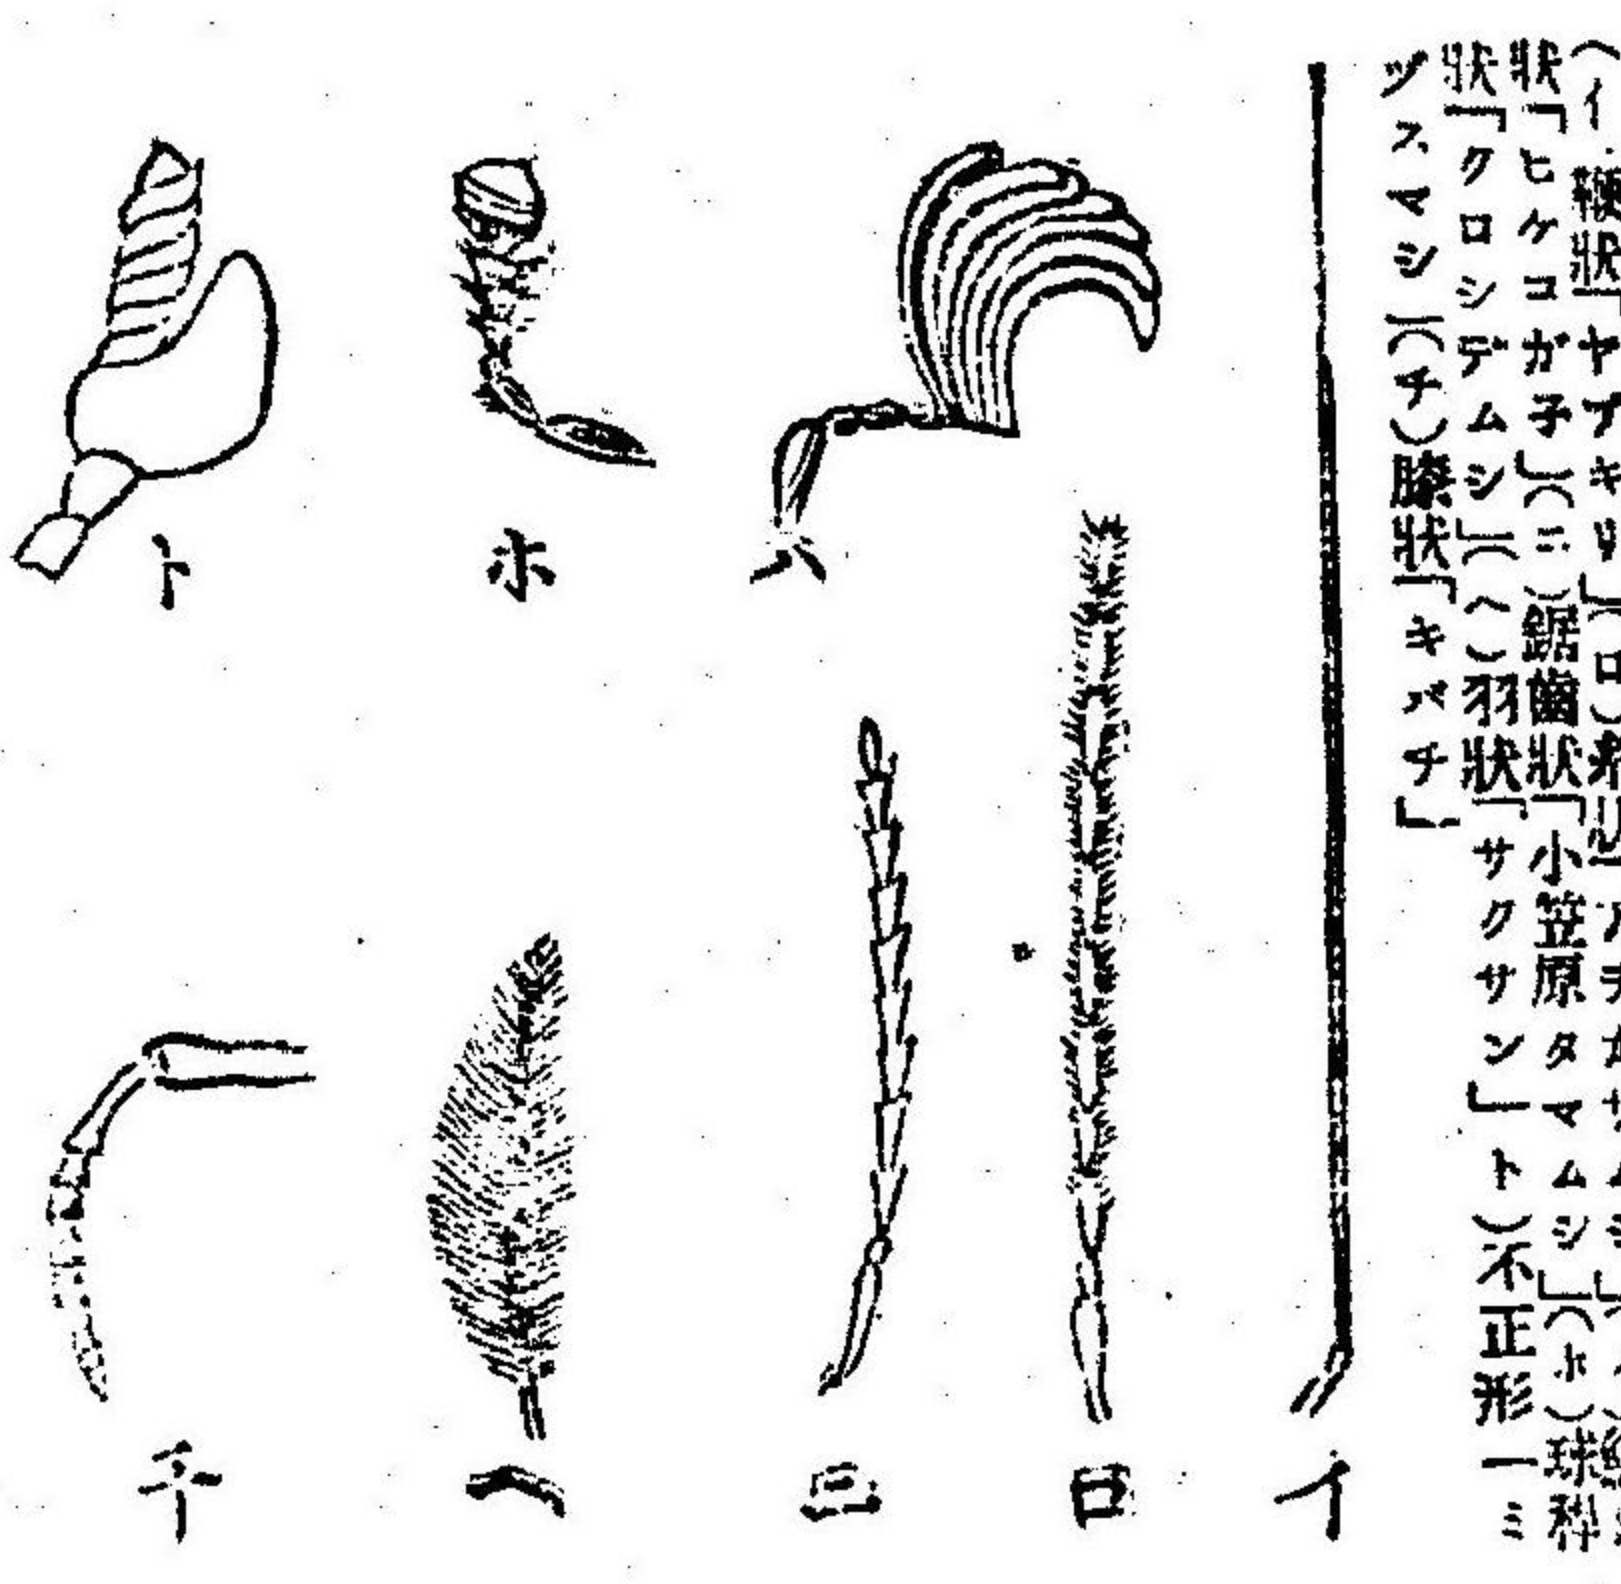 (イ)鞭狀「ヤブキリ」(ロ)
狀「ヒケコガ子」(ニ)鋸齒狀「小笠原タマムシ」(ホ)球稈
狀「クロシデムシ」(ヘ)羽狀「サクサン」ト)不正形一ミ
ヅスマシ」(チ)膝狀「キバチ」
イ
ロ
ハ
ニ
ホ
ヘ
ト
チ